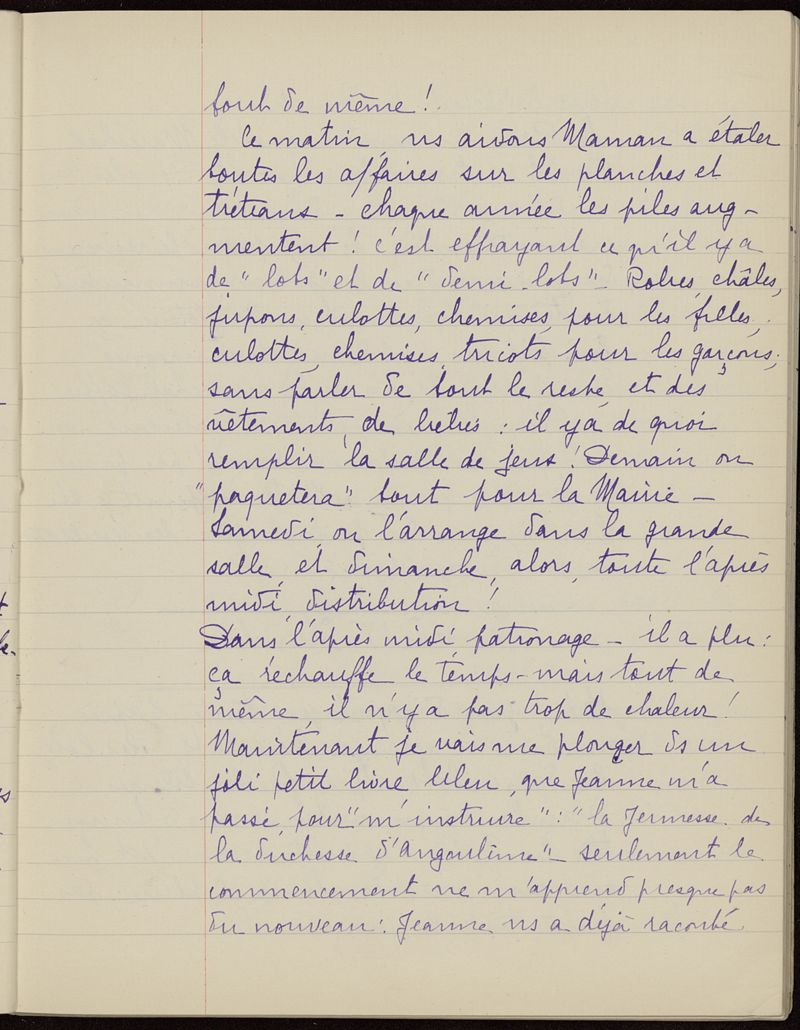 tout de même !
Ce matin, ns aidons Maman a étaler
toutes les affaires sur les planches et
tréteaux - chaque année les piles aug-
mentent ! c'est effrayant ce qu'il y a
de "lots" et de "demi-lots" - Robes, châles,
jupons, culottes, chemises, pour les filles,
culottes, chemises, tricots pour les garçons,
sans parler de tout le reste, et des
vêtements de bébés : il y a de quoi
remplir la salle de jeux ! Demain on
"paquetera" tout pour la Mairie -
Samedi, on l'arrange dans la grande
salle, et dimanche, alors, toute l'après
midi, distribution !
Dans l'après midi patronage - il a plu :
ça réchauffe le temps - mais tout de
même, il n'y a pas trop de chaleur !
Maintenant je vais me plonger ds un
joli petit livre bleu, que Jeanne m'a
passé, pour "m'instruire" : "la Jeunesse de
la duchesse d'Angoulême" - seulement le
commencement ne m'apprend presque pas
du nouveau : Jeanne ns a déjà raconté